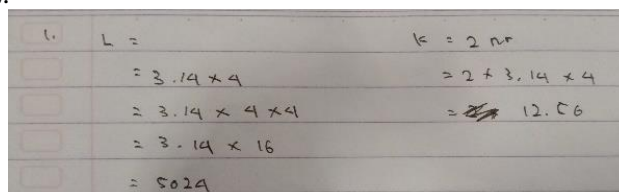 1. L =
= 3.14 x 4
= 3.14 x 4 x 4
= 3.14 x 16
= 5024
K = 2 πr
= 2 x 3.14 x 4
= 12.56